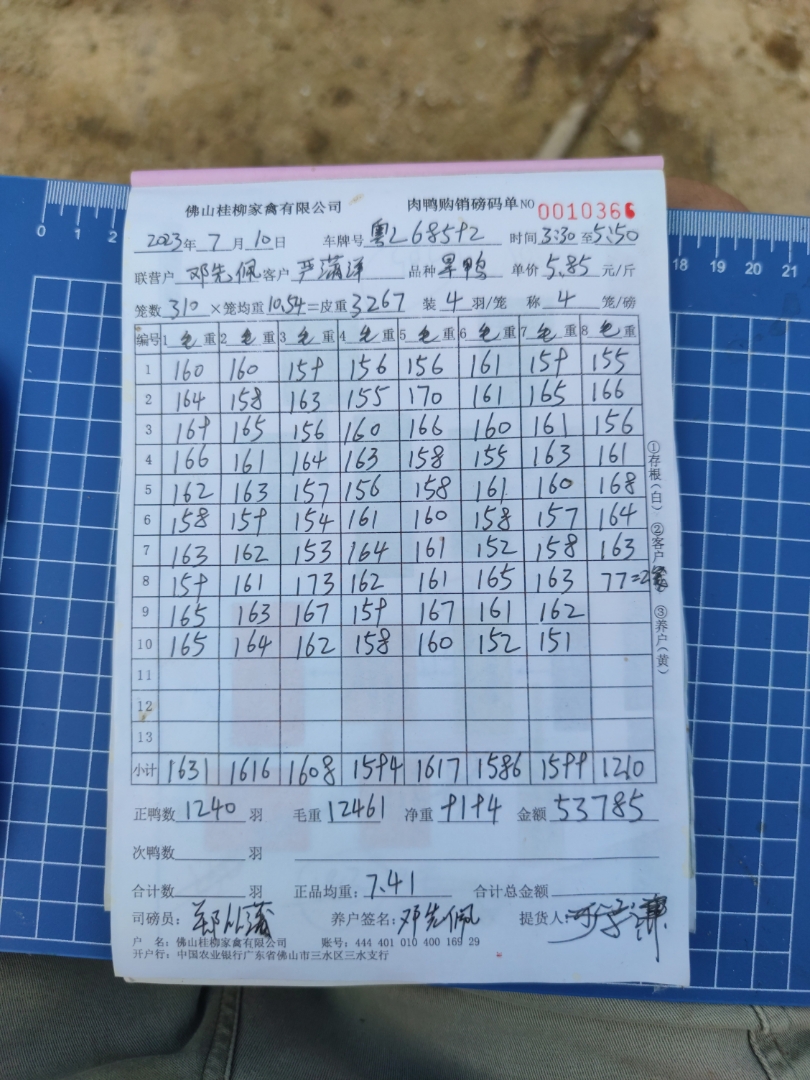 佛山桂柳家禽有限公司 肉鸭购销磅码单 NO 0010366
2023年 7月10日 车牌号 粤L68592 时间 3:30 至 5:50
联营户 邓先佩 客户 品种 旱鸭 单价 5.85 元/斤
笼数 310 ×笼均重 10.54 =皮重 3267 装 4 羽/笼 称 4 笼/磅
编号 1 毛重 2 毛重 3 毛重 4 毛重 5 毛重 6 毛重 7 毛重 8 毛重
1 160 160 159 156 156 161 159 155
2 164 158 163 155 170 161 165 166
3 169 165 156 160 166 160 161 156
4 166 161 164 163 158 155 163 161
5 162 163 157 156 158 161 160 168
6 158 159 154 161 160 158 157 164
7 163 162 153 164 161 152 158 163
8 159 161 173 162 161 165 163 77=2笼
9 165 163 167 159 167 161 162
10 165 164 162 158 160 152 151
11
12
13
小计 1631 1616 1608 1594 1617 1586 1599 1210
①存根(白) ②客户 ③养户(黄)
正鸭数 1240 羽 毛重 12461 净重 9194 金额 53785
次鸭数 羽
合计数 羽 正品均重: 7.41 合计总金额
司磅员: 养户签名: 邓先佩 提货人:
户 名: 佛山桂柳家禽有限公司 账号: 444 401 010 400 169 29
开户行: 中国农业银行广东省佛山市三水区三水支行
0 1 2
18 19 20 21